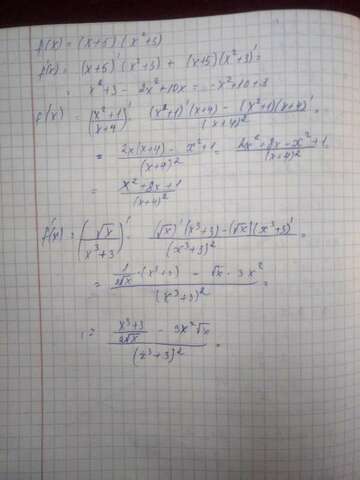 f(x) = (x+5)(x²+3)
f'(x) = (x+5)'(x²+3) + (x+5)(x²+3)' =
= x²+3 - 2x²+10x = -x²+10+3
f'(x) = (x²+1 / x+4)' = ((x²+1)'(x+4) - (x²+1)(x+4)') / (x+4)² =
= (2x(x+4) - x²+1) / (x+4)² = (2x²+8x-x²+1) / (x+4)²
= (x²+8x+1) / (x+4)²
f'(x) = (√x / x³+3)' = ((√x)'(x³+3) - (√x)(x³+3)') / (x³+3)² =
= (1/2√x · (x³+3) - √x · 3x²) / (x³+3)² =
= ((x³+3)/2√x - 3x²√x) / (x³+3)² .